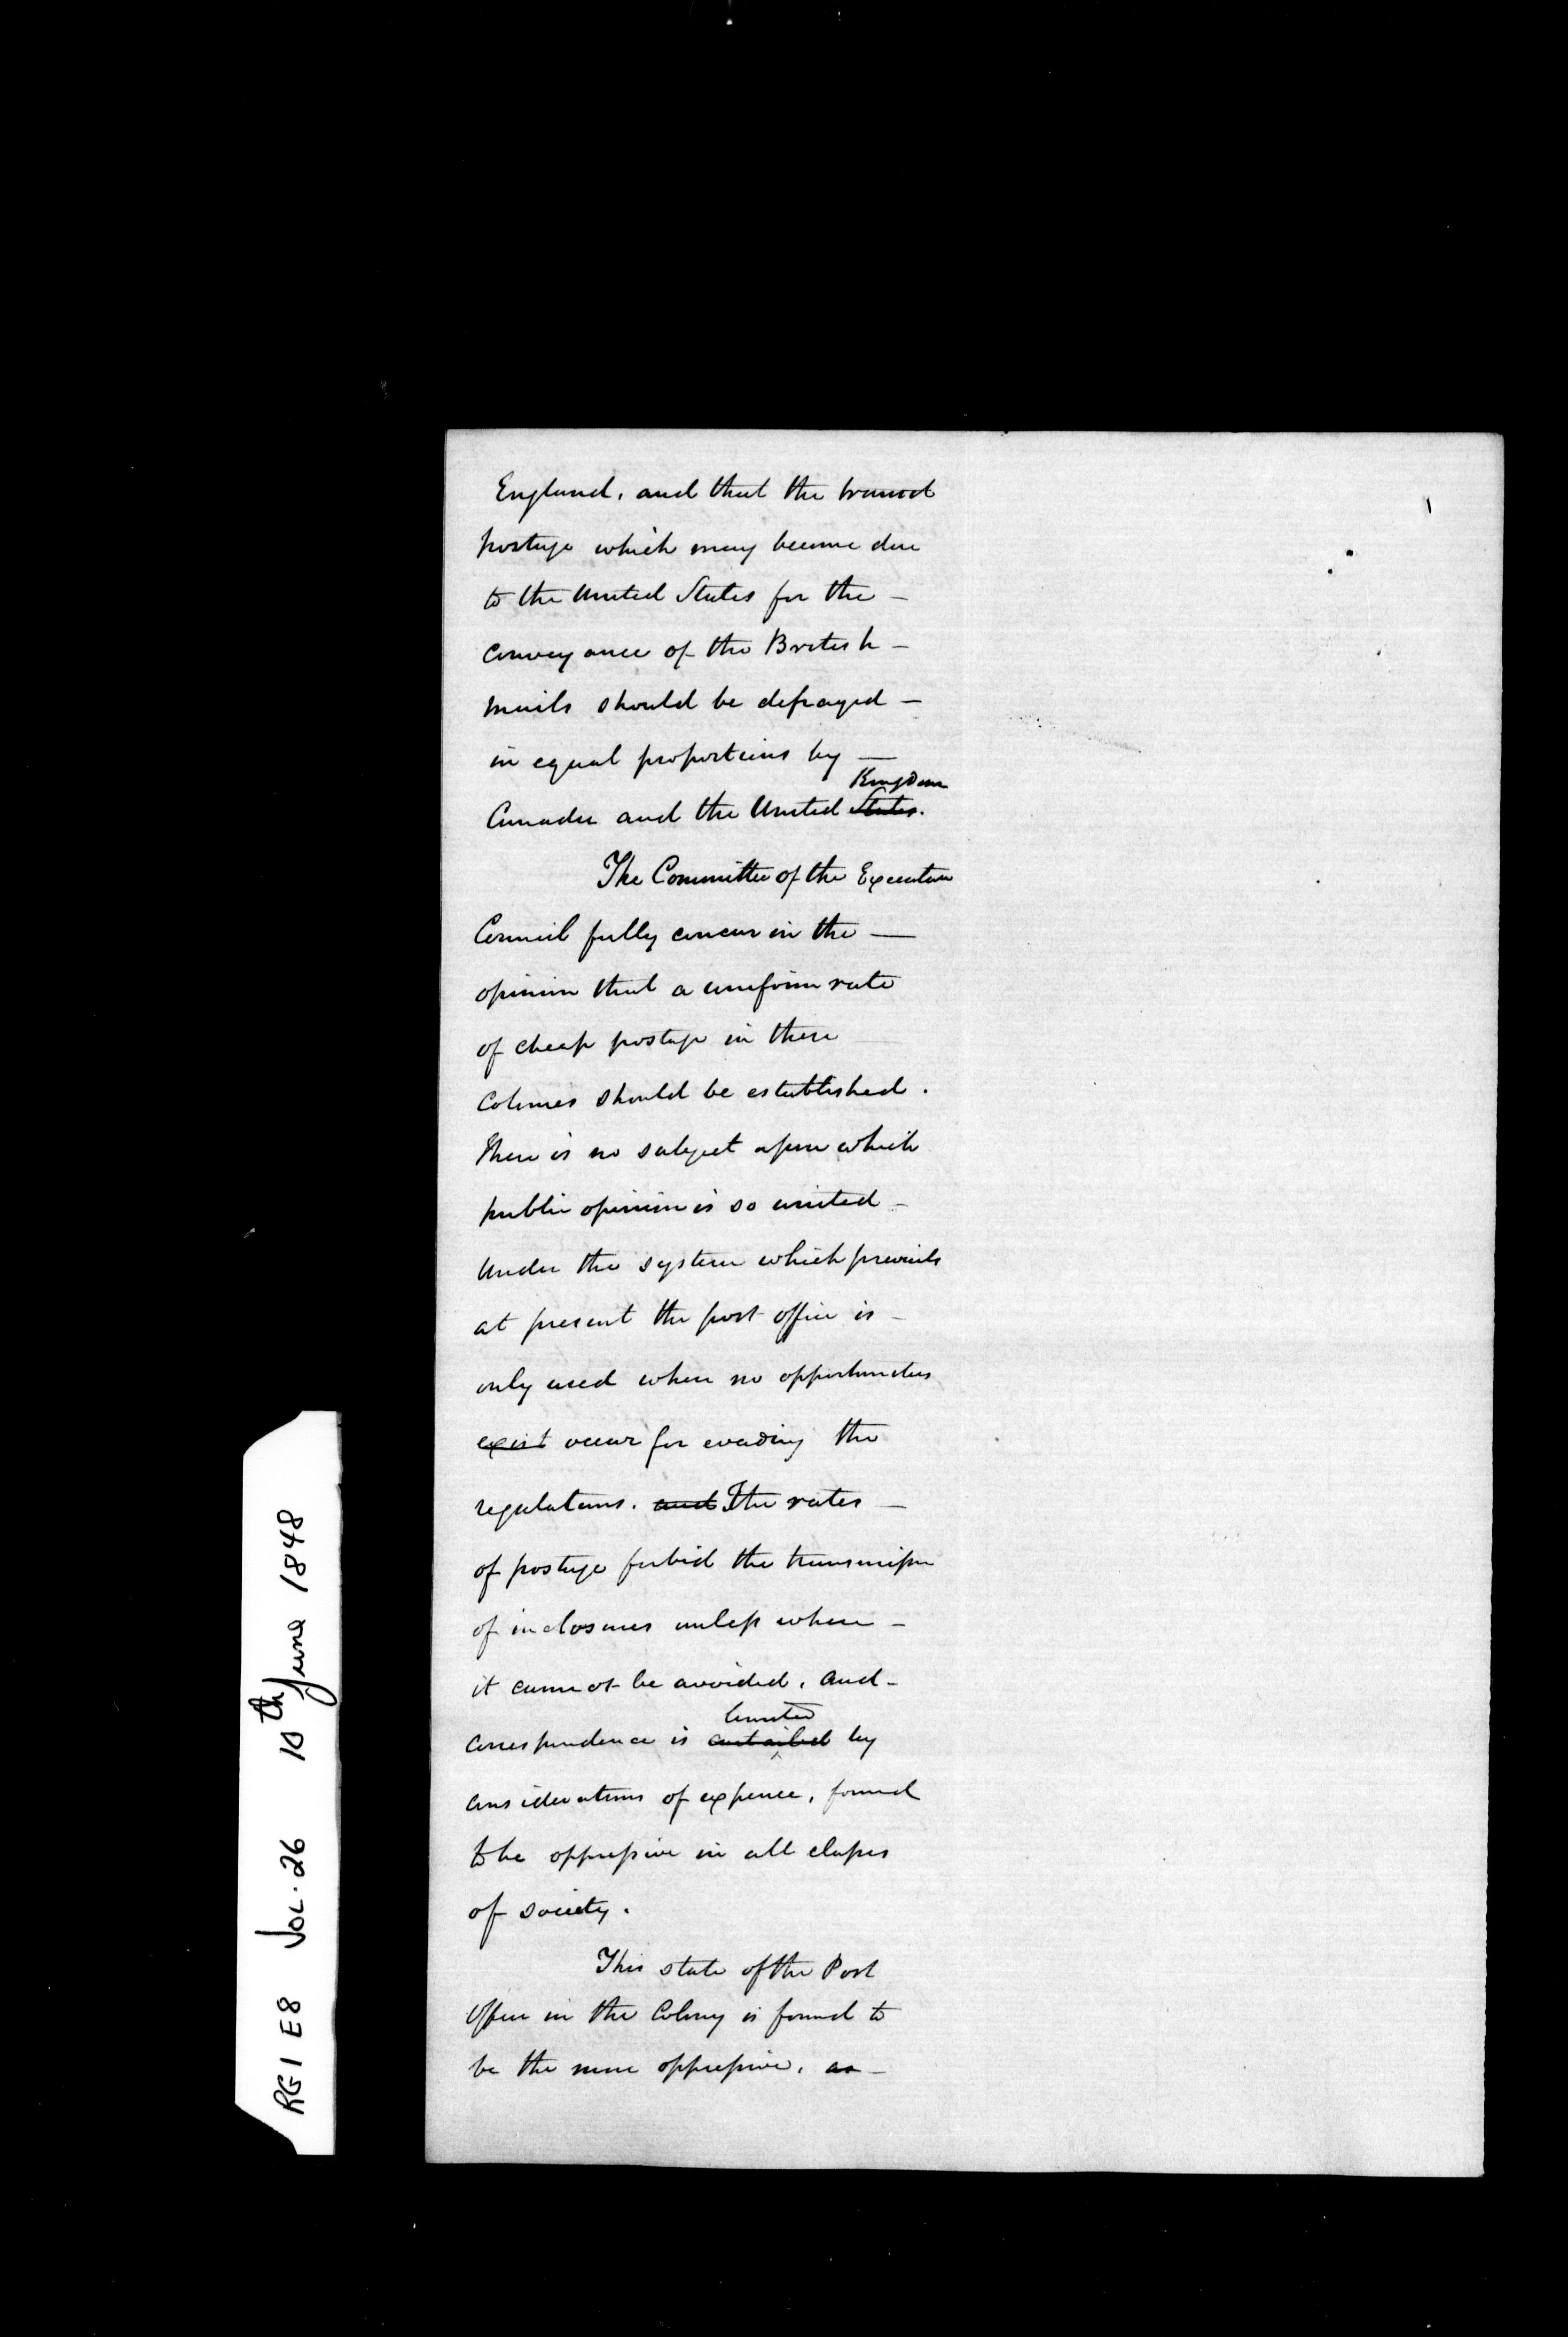 England, and that the transit
postage which may become due
to the United States for the –
conveyance of the British –
mails should be defrayed –
in equal proportions by —
Kingdom
Canada and the United States.
The Committee of the Executive
Council fully concur in the —
opinion that a uniform rate
of cheap postage in these
Colonies should be established.
There is no subject upon which
public opinion is so united –
Under the system which prevails
at present the post office is –
only used when no opportunities
exist occur for evading the
regulations. and The rates –
of postage forbid the transmission
of inclosures unless where –
it cannot be avoided, and –
limited
correspondence is curtailed by
considerations of expence, found
to be oppressive in all classes
of society.
This state of the Post
Office in the Colony is found to
be the more oppressive, as –
RG1 E8 VOL. 26 10th June 1848